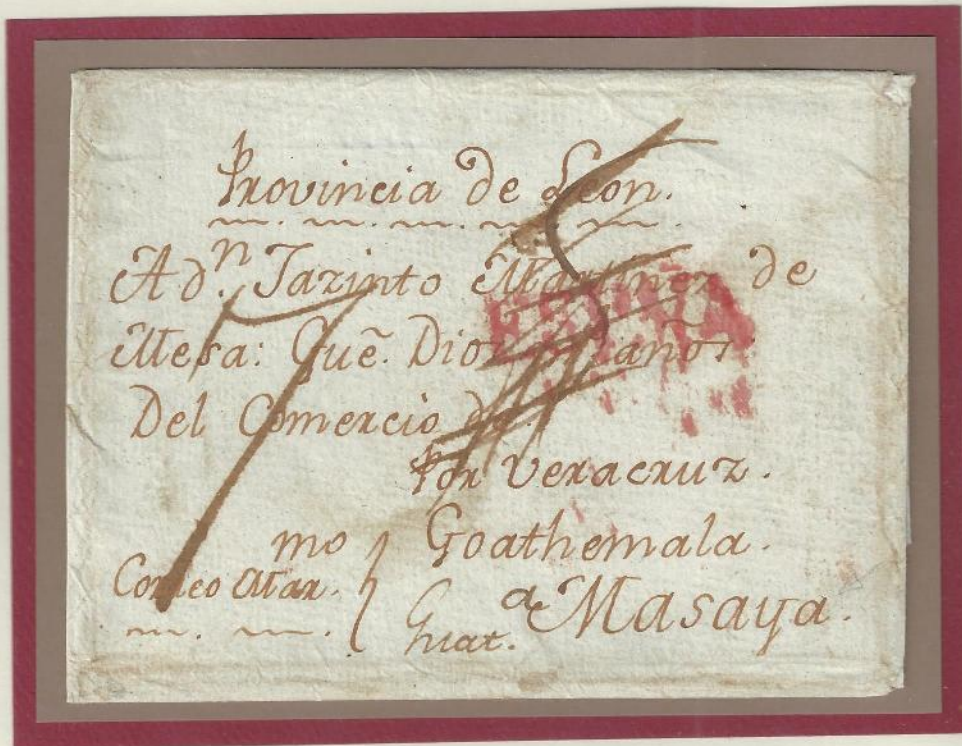 Provincia de Leon.
A dn. Jazinto Martinez de
Mesa: Guẽ. Dios años
Del Comercio de
Por Veracruz.
Goathemala.
a Masaya.
Correo Mar.mo
Guat.
ESPAÑA